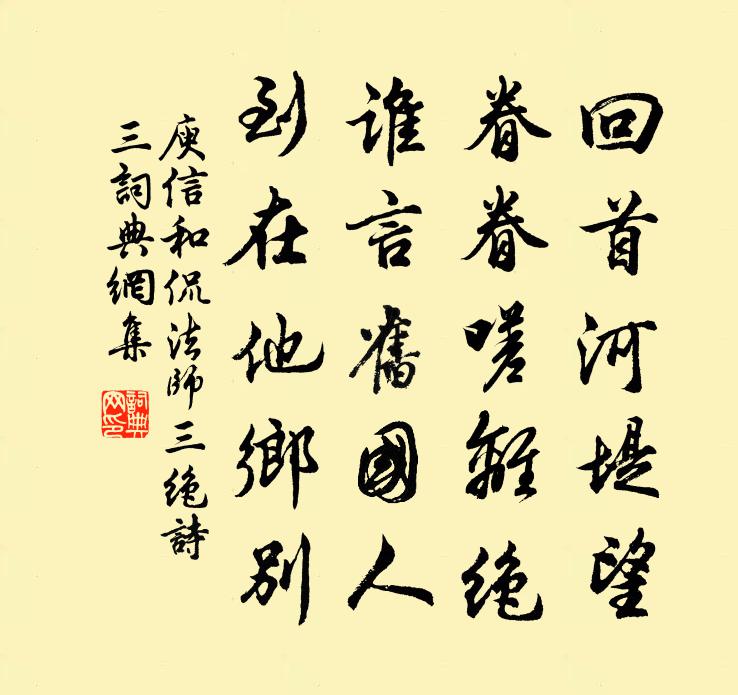 回首河堤望
眷眷嗟離絶
誰言舊國人
到在他鄉別
庾信和侃法師三絶詩
三詞典網集
詞典網印